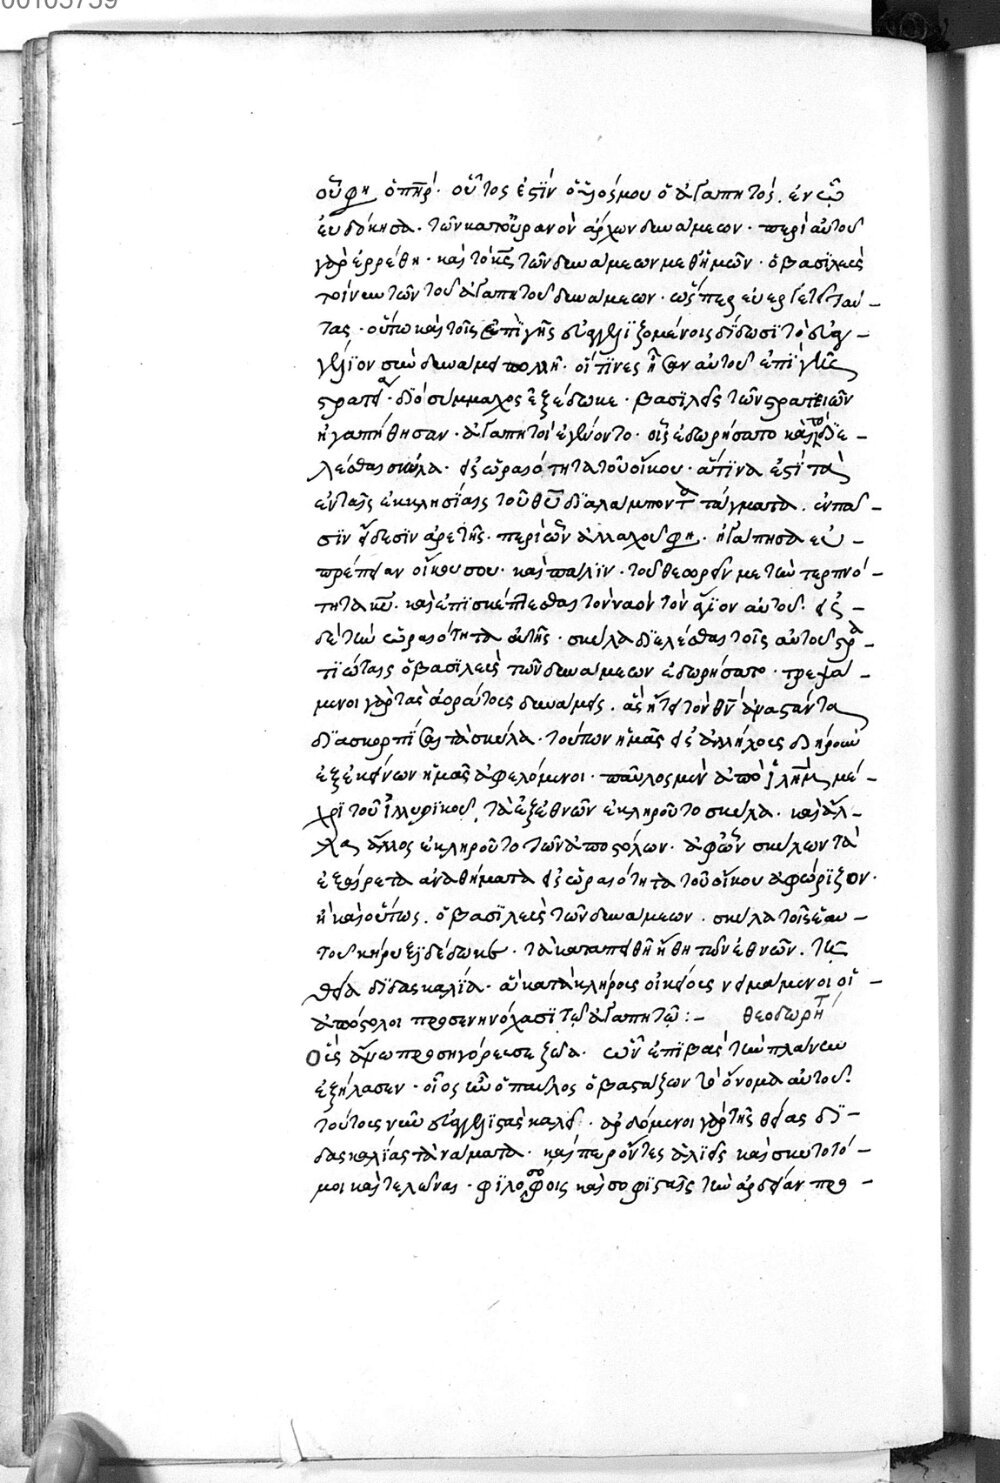 00105759
οὗ φη ὁ πηρ· οὗτος ἐστὶν ὁ υἱός μου ὁ ἀγαπητός, ἐν ᾧ
εὐδόκησα· τῶν κατ' οὐρανὸν ἀρχων δυνάμεων· περὶ αὐτοῦ
γὰρ ἐρρέθη· καὶ τὸ κς τῶν δυνάμεων μεθ' ἡμῶν· ὁ βασιλεὺς
τοίνυν τῶν τοῦ ἀγαπητοῦ δυνάμεων· ὥσπερ εὐεργετεῖ ταύ-
τας· οὕτω καὶ τοῖς ἐπὶ γῆς εὐαγγελιζομένοις δίδωσι τὸ εὐαγ-
γέλιον σὺν δυνάμει πολλῇ· οἵτινες ἦσαν αὐτοῦ ἐπὶ γῆς
στρατεία· διὸ σύμμαχος ἐξέδωκε· βασιλεὺς τῶν στρατειῶν
ἠγαπήθησαν· ἀγαπητοὶ ἐγένοντο· οἷς ἐδωρήσατο καὶ τὸ διε-
λέσθαι σκύλα· εἰς ὡραιότητα τοῦ οἴκου· ἅτινα ἐστὶ τὰ
ἐν ταῖς ἐκκλησίαις τοῦ θυ διαλάμποντα τάγματα· ἐν πᾶ-
σιν εἴδεσιν ἀρετῆς· περὶ ὧν ἀλλαχοῦ φη· ἠγάπησα εὐ-
πρέπειαν οἴκου σου· καὶ πάλιν· τοῦ θεωρεῖν με τὴν τερπνό-
τητα κυ· καὶ ἐπισκέπτεσθαι τὸν ναὸν τὸν ἅγιον αὐτοῦ· εἰς
δὲ τὴν ὡραιότητα αὐτῆς· σκύλα διελέσθαι τοῖς αὐτοῦ στρα-
τιώταις ὁ βασιλεὺς τῶν δυνάμεων ἐδωρήσατο· τρεψά-
μενοι γὰρ τὰς ἀοράτους δυνάμεις· ἃς ᾔτει τὸν θν ἀναστάντα
διασκορπίσαι τὰ σκύλα· τούτων ἡμᾶς εἰς ἀλλήλους διῄρουν
ἐξ ἐκείνων ἡμᾶς ἀφελόμενοι· παῦλος μὲν ἀπὸ ἱλημ μέ-
χρι τοῦ ἰλλυρικοῦ, τὰ ἐξ ἐθνῶν ἐκληροῦτο σκύλα· καὶ ἄλ-
λα ἄλλος ἐκληροῦτο τῶν ἀποστόλων· ἀφ' ὧν σκύλων τὰ
ἐξαίρετα ἀναθήματα εἰς ὡραιότητα τοῦ οἴκου ἀφώριζον·
ἢ καὶ οὕτως· ὁ βασιλεὺς τῶν δυνάμεων· σκύλα τοῖς ἑαυ-
τοῦ κήρυξι δέδωκε· τὰ καταπεισθῆ ἤθη τῶν ἐθνῶν· τῇ
θεία διδασκαλία· ἃ κατὰ κλήρους οἰκείους νειμάμενοι οἱ
ἀπόστολοι προσενηνόχασι τῷ ἀγαπητῷ :- θεοδωρήτ
Οὓς ἄνω προσηγόρευσε ξεῖα· ὧν ἐπιβὰς τὴν πλάνην
ἐξήλασεν· οἷος ἦν ὁ παῦλος ὁ βαστάζων τὸ ὄνομα αὐτοῦ·
τούτους νῦν εὐαγγελιστὰς καλεῖ· ἀρδόμενοι γὰρ τῆς θείας δι-
δασκαλίας τὰ νάματα· καίπερ ὄντες ἁλιεῖς καὶ σκυτοτό-
μοι καὶ τελῶναι· φιλοσόφοις καὶ σοφισταῖς τὴν ἀρδείαν προ-